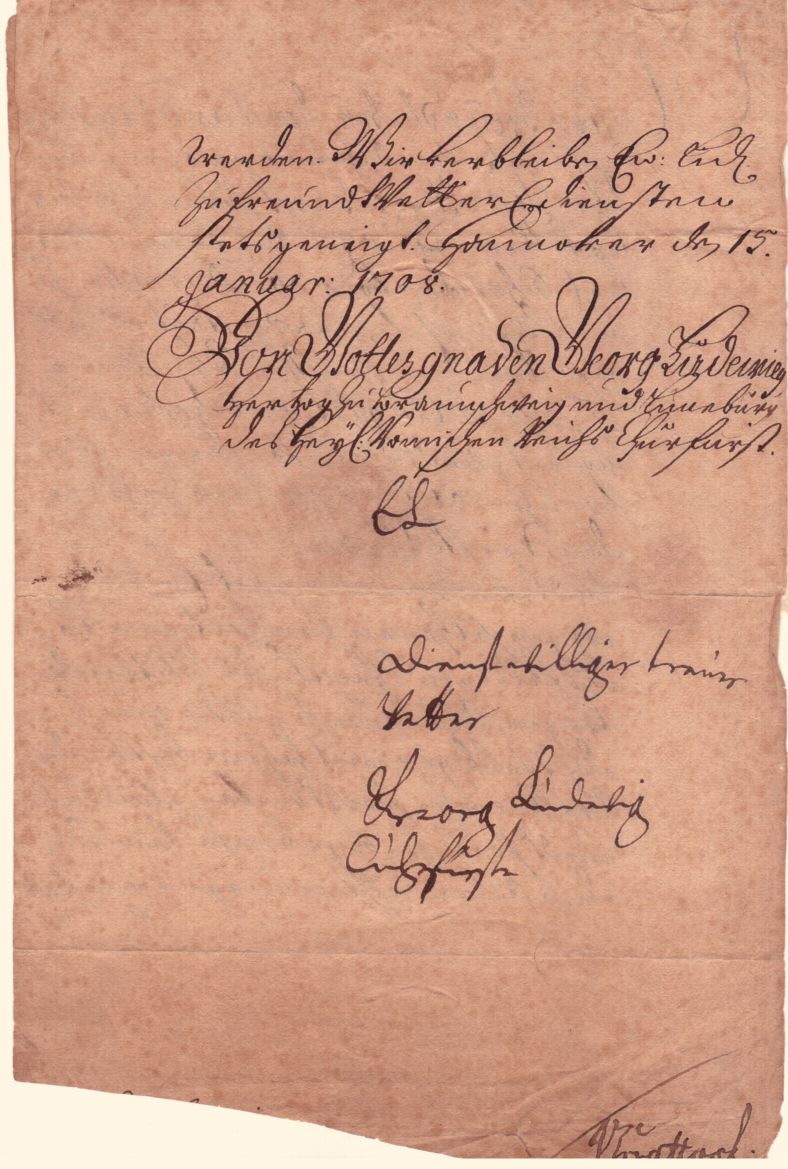 werden. Wir verbleiben Ew: Lbd.
Zu freund Vetterl. diensten
stets geneigt. Hannover den 15.
januar: 1708.
Von Gottes gnaden Georg Ludewig
Hertzog zu Braunschweig und Lüneburg
des Heyl: Römischen Reichs Churfürst.
EL
Dienstwilliger treuer
Vetter
Georg Ludewig
Churfürst